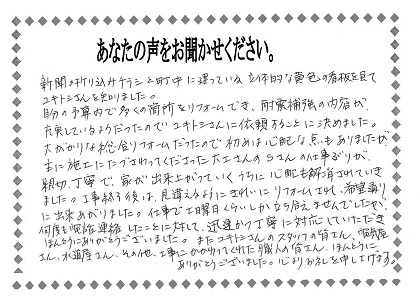 あなたの声をお聞かせください。
新聞の折り込みチラシと町中に建っている立体的な黄色の看板を見て
ユキトシさんを知りました。
自分の予算内で多くの箇所をリフォームでき、耐震補強の内容が
充実しているようだったのでユキトシさんに依頼することに決めました。
大がかりな総合リフォームだったので初めは心配な点もありましたが
主に施工にたずさわってくださった大工さんのSさんの仕事ぶりが、
親切、丁寧で、家が出来上がっていくうちに心配も解消されていき
ました。工事終了後は、見違えるようにきれいにリフォームされ、希望通り
に出来あがりました。仕事で土曜日くらいしか立ち合えませんでしたが、
何度も電話連絡したことに対して、迅速かつ丁寧に対応していただき
ほんとうにありがとうございました。またユキトシさんのスタッフの皆さん、電気屋
さん、水道屋さん、その他、工事にかかわってくれた職人の皆さん、ほんとうに
ありがとうございました。心よりお礼を申し上げます。